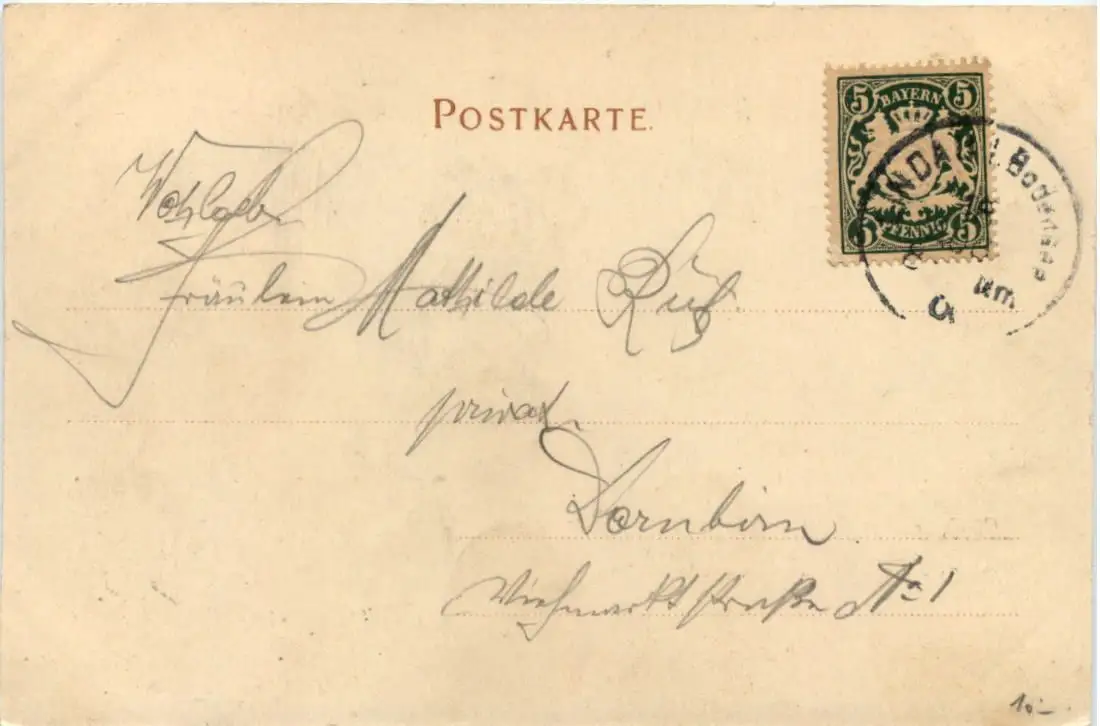 POSTKARTE.
5 BAYERN 5
5 PFENNIG 5
NDAU Bodensee
Wohlgeb
Fräulein Mathilde Ruf
privat.
Dornbirn
Viehmarktstraße No 1
10.-